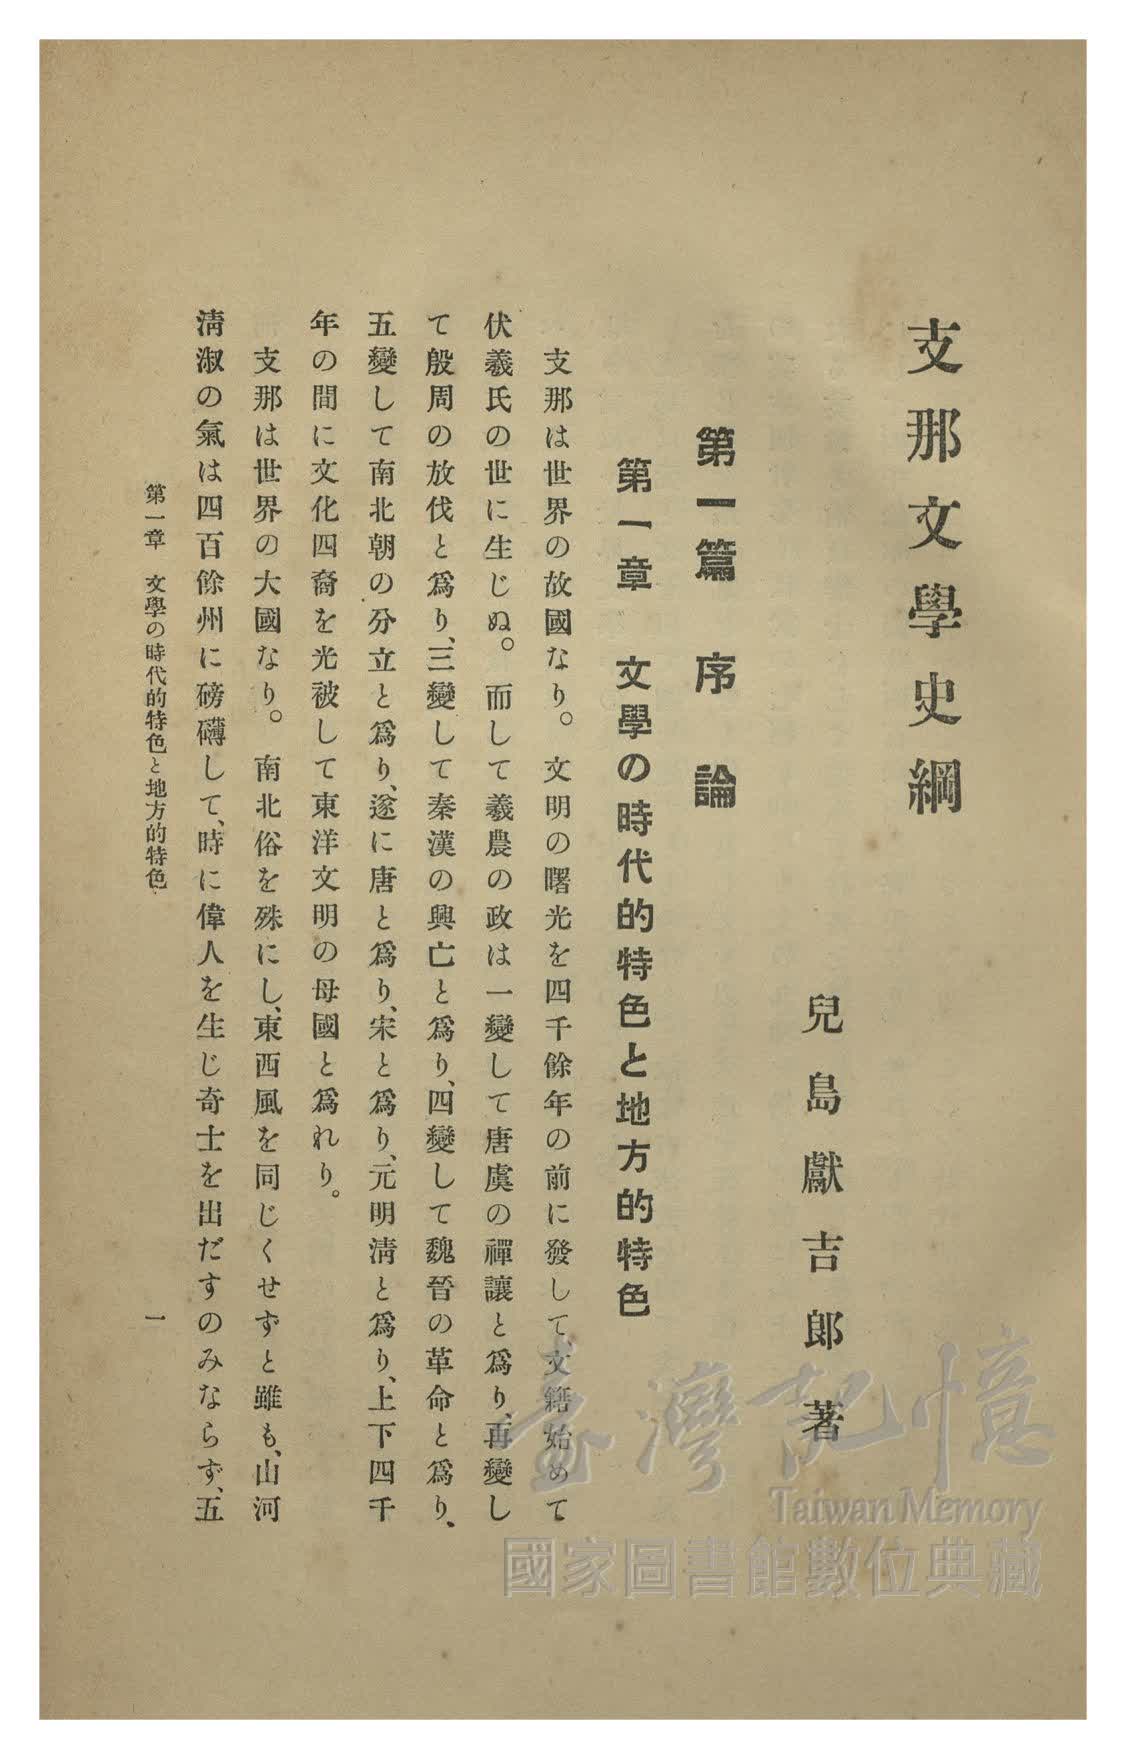 支那文學史綱
兒島獻吉郎 著
第一篇 序論
第一章 文學の時代的特色と地方的特色
支那は世界の故國なり。文明の曙光を四千餘年の前に發して、文籍始めて
伏羲氏の世に生じぬ。而して羲農の政は一變して唐虞の禪讓と爲り、再變し
て殷周の放伐と爲り、三變して秦漢の興亡と爲り、四變して魏晉の革命と爲り、
五變して南北朝の分立と爲り、遂に唐と爲り、宋と爲り、元明淸と爲り、上下四千
年の間に文化四裔を光被して東洋文明の母國と爲れり。
支那は世界の大國なり。南北俗を殊にし、東西風を同じくせずと雖も、山河
淸淑の氣は四百餘州に磅礴して、時に偉人を生じ奇士を出だすのみならず、五
第一章 文學の時代的特色と地方的特色
一
臺灣記憶
Taiwan Memory
國家圖書館數位典藏